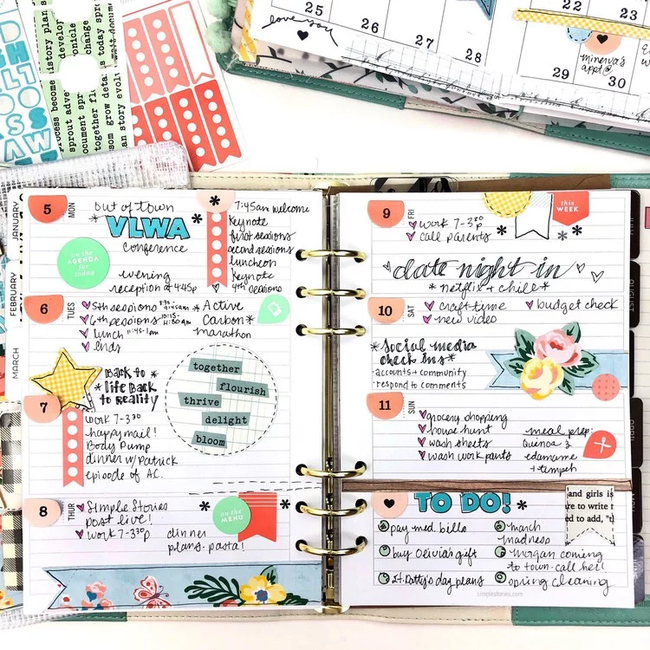 25
love you
31
22
23
minerva's
appt @
29
30
process become history plan s
develop
change
together
evolve
JANUARY
FEBRUARY
MARCH
5
MON
out of town
VLWA
conference
on the
AGENDA
for
today
evening
reception at 445p
7:45am welcome
keynote
first sessions
second sessions
luncheon
keynote
4th sessions
6
TUES
5th sessions
6th sessions
lunch
ends
Active
Carbon
marathon
BACK to
life BACK
to REALITY
together
flourish
thrive
delight
bloom
7
work 7-330
happymail!
Body Pump
dinner w/ Patrick
episode of AC.
8
THU
Simple Stories
post live!
work 7-330p
on the
MENU
dinner
plans - pasta!
9
FRI
work 7-330
call parents
this
WEEK
date night in
*netflix + chill*
10
SAT
craft time
budget check
new video
*Social media
check ins*
accounts + community
respond to comments
11
SUN
grocery shopping
house hunt
wash sheets
wash work pants
meal prep:
quinoa &
edamame
+ tempeh
TO DO!
pay med bills
buy Olivia's gift
St. Patty's day plans
march
madness
morgan coming
to town - call her!
spring cleaning
and girls is
to add, "t